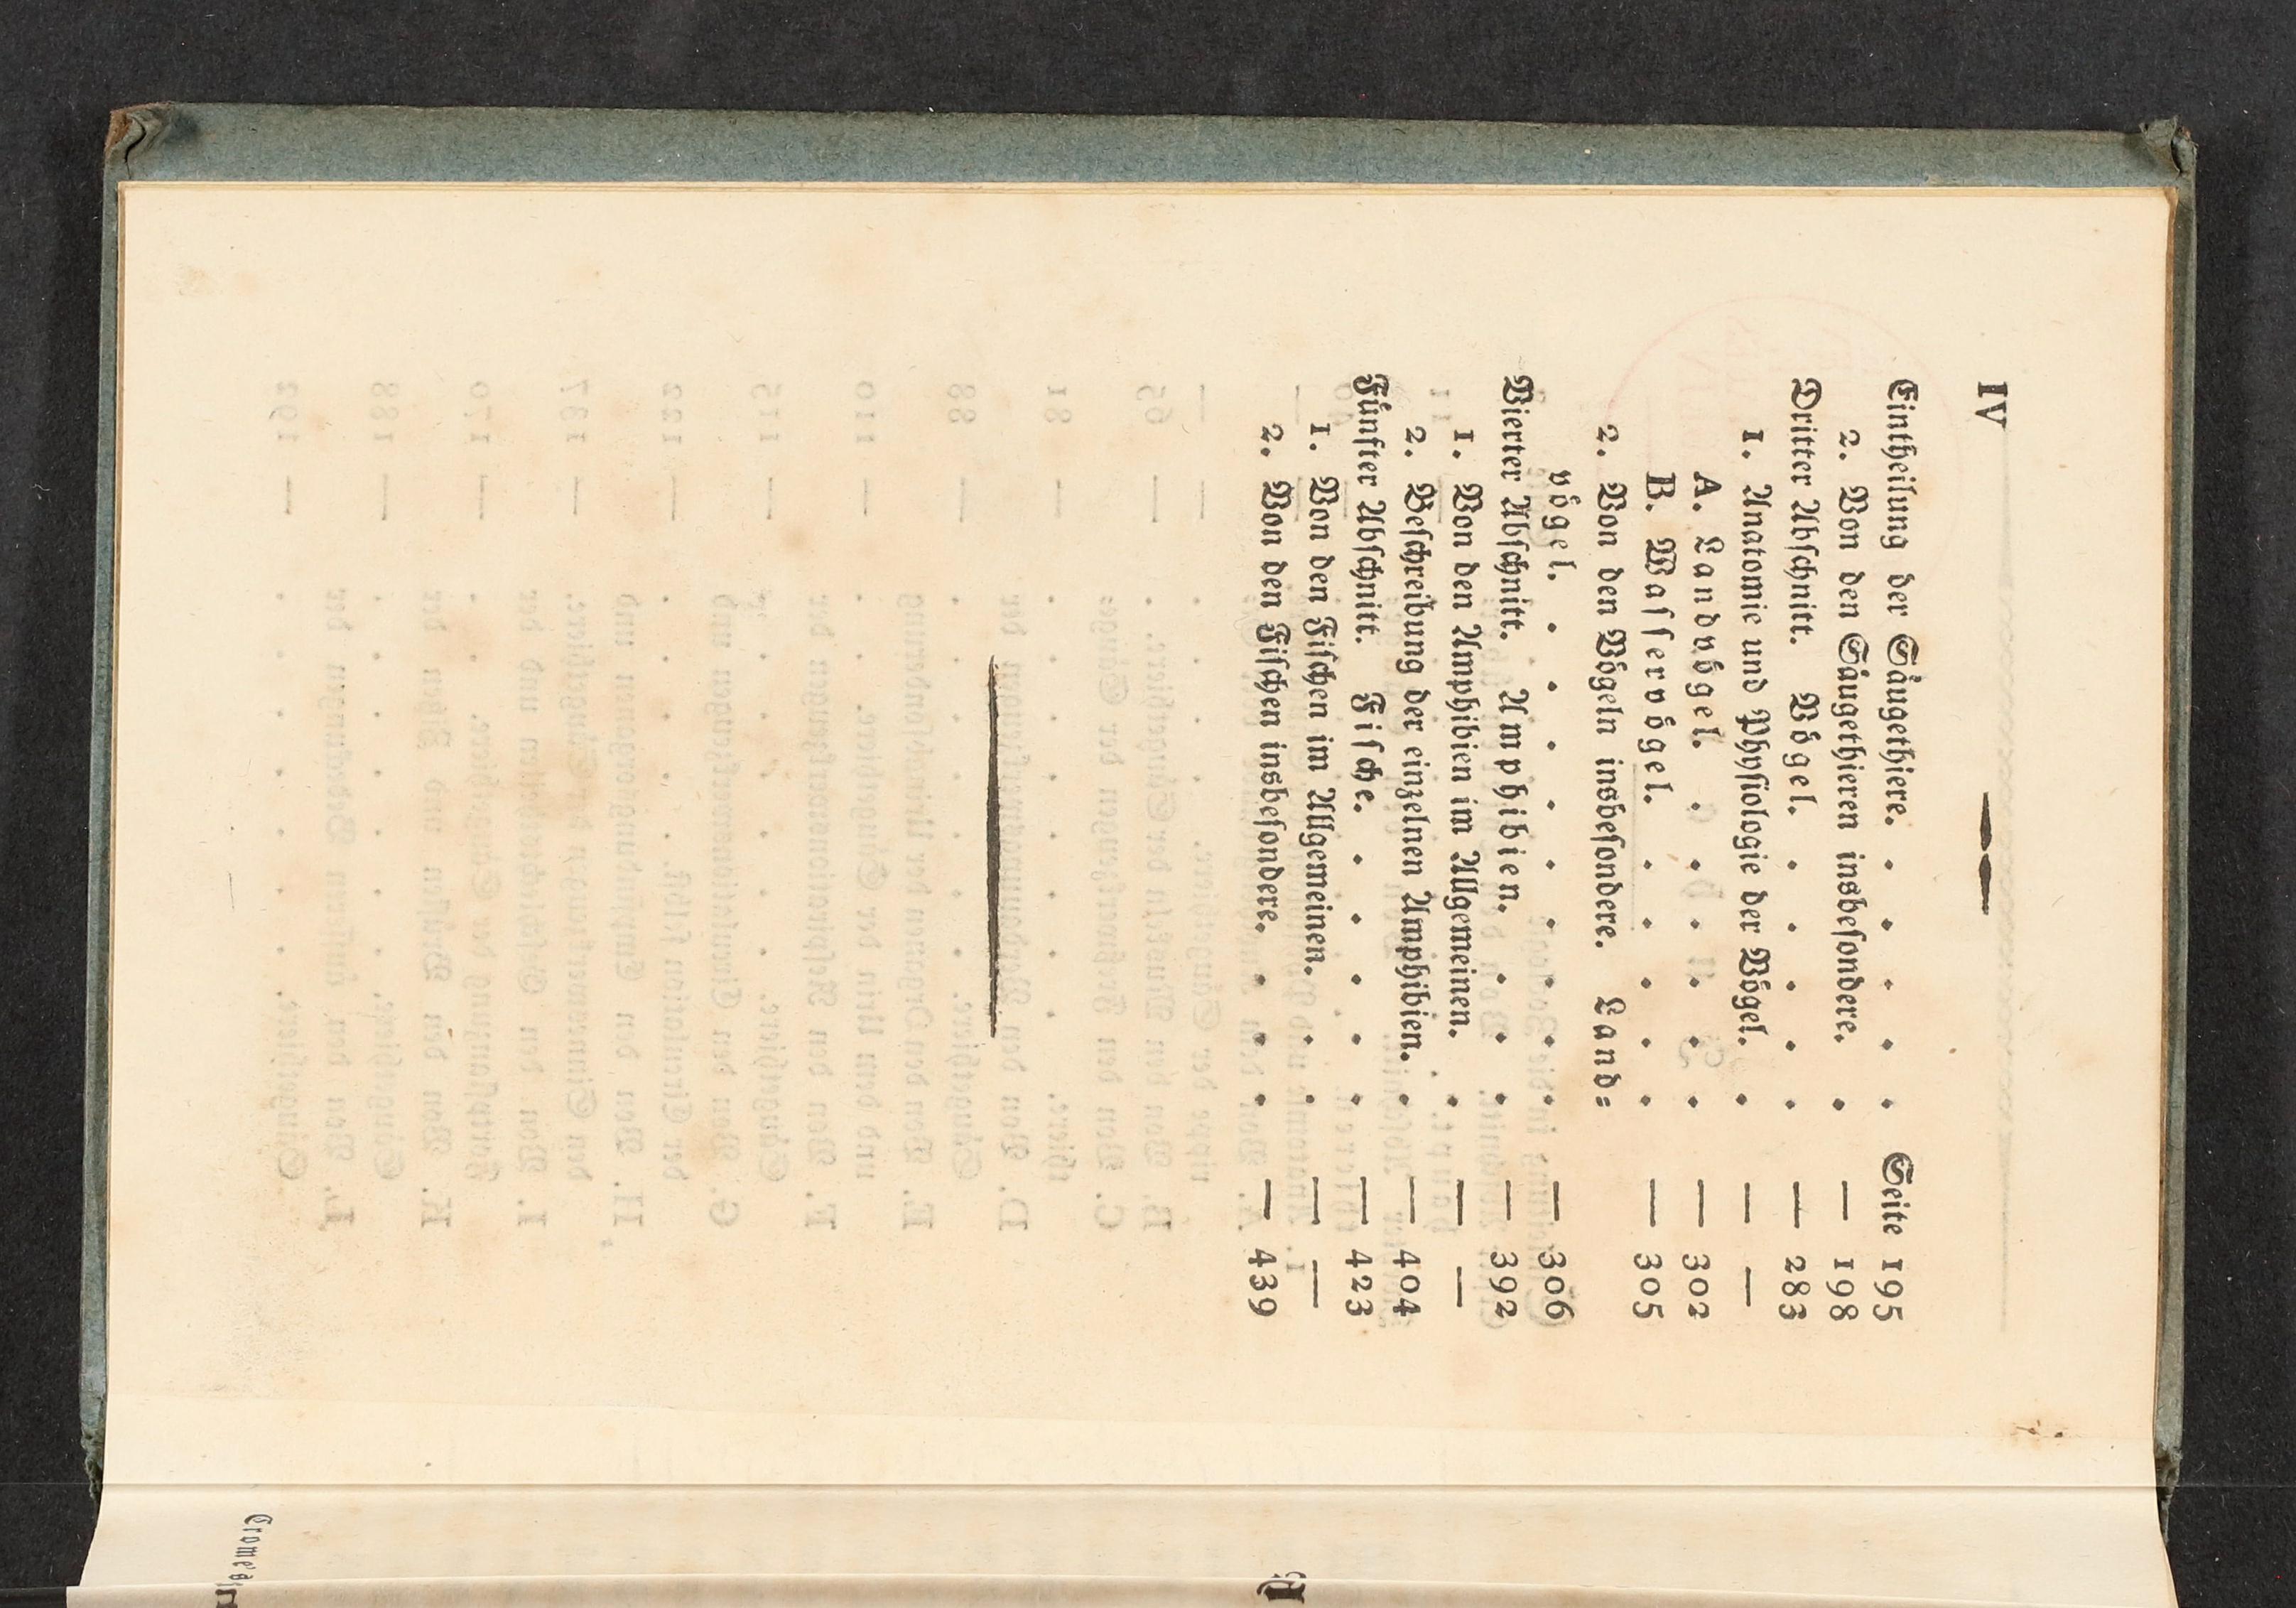 IV
Eintheilung der Säugethiere. . . . . . Seite 195
2. Von den Säugethieren insbesondere. . — 198
Dritter Abschnitt. Vögel. . . . . . — 283
1. Anatomie und Physiologie der Vögel. . — —
A. Landvögel. . . . . . . — 302
B. Wasservögel. . . . . . — 305
2. Von den Vögeln insbesondere. Land=
vögel. . . . . . . . . . — 306
Vierter Abschnitt. Amphibien. . . . — 392
1. Von den Amphibien im Allgemeinen. . — —
2. Beschreibung der einzelnen Amphibien. . — 404
Fünfter Abschnitt. Fische. . . . . . — 423
1. Von den Fischen im Allgemeinen. . . — —
2. Von den Fischen insbesondere. . . . — 439
Crome's